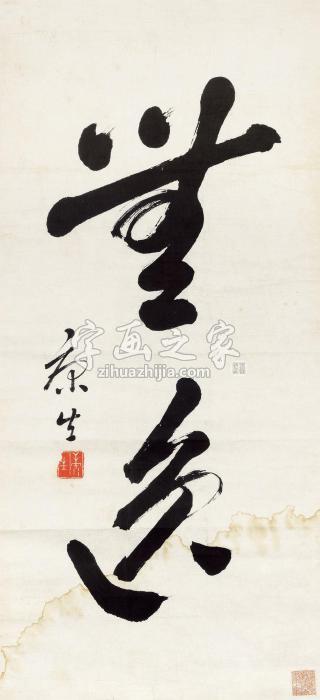 無逸
康生
字画之家
zihuazhijia.com